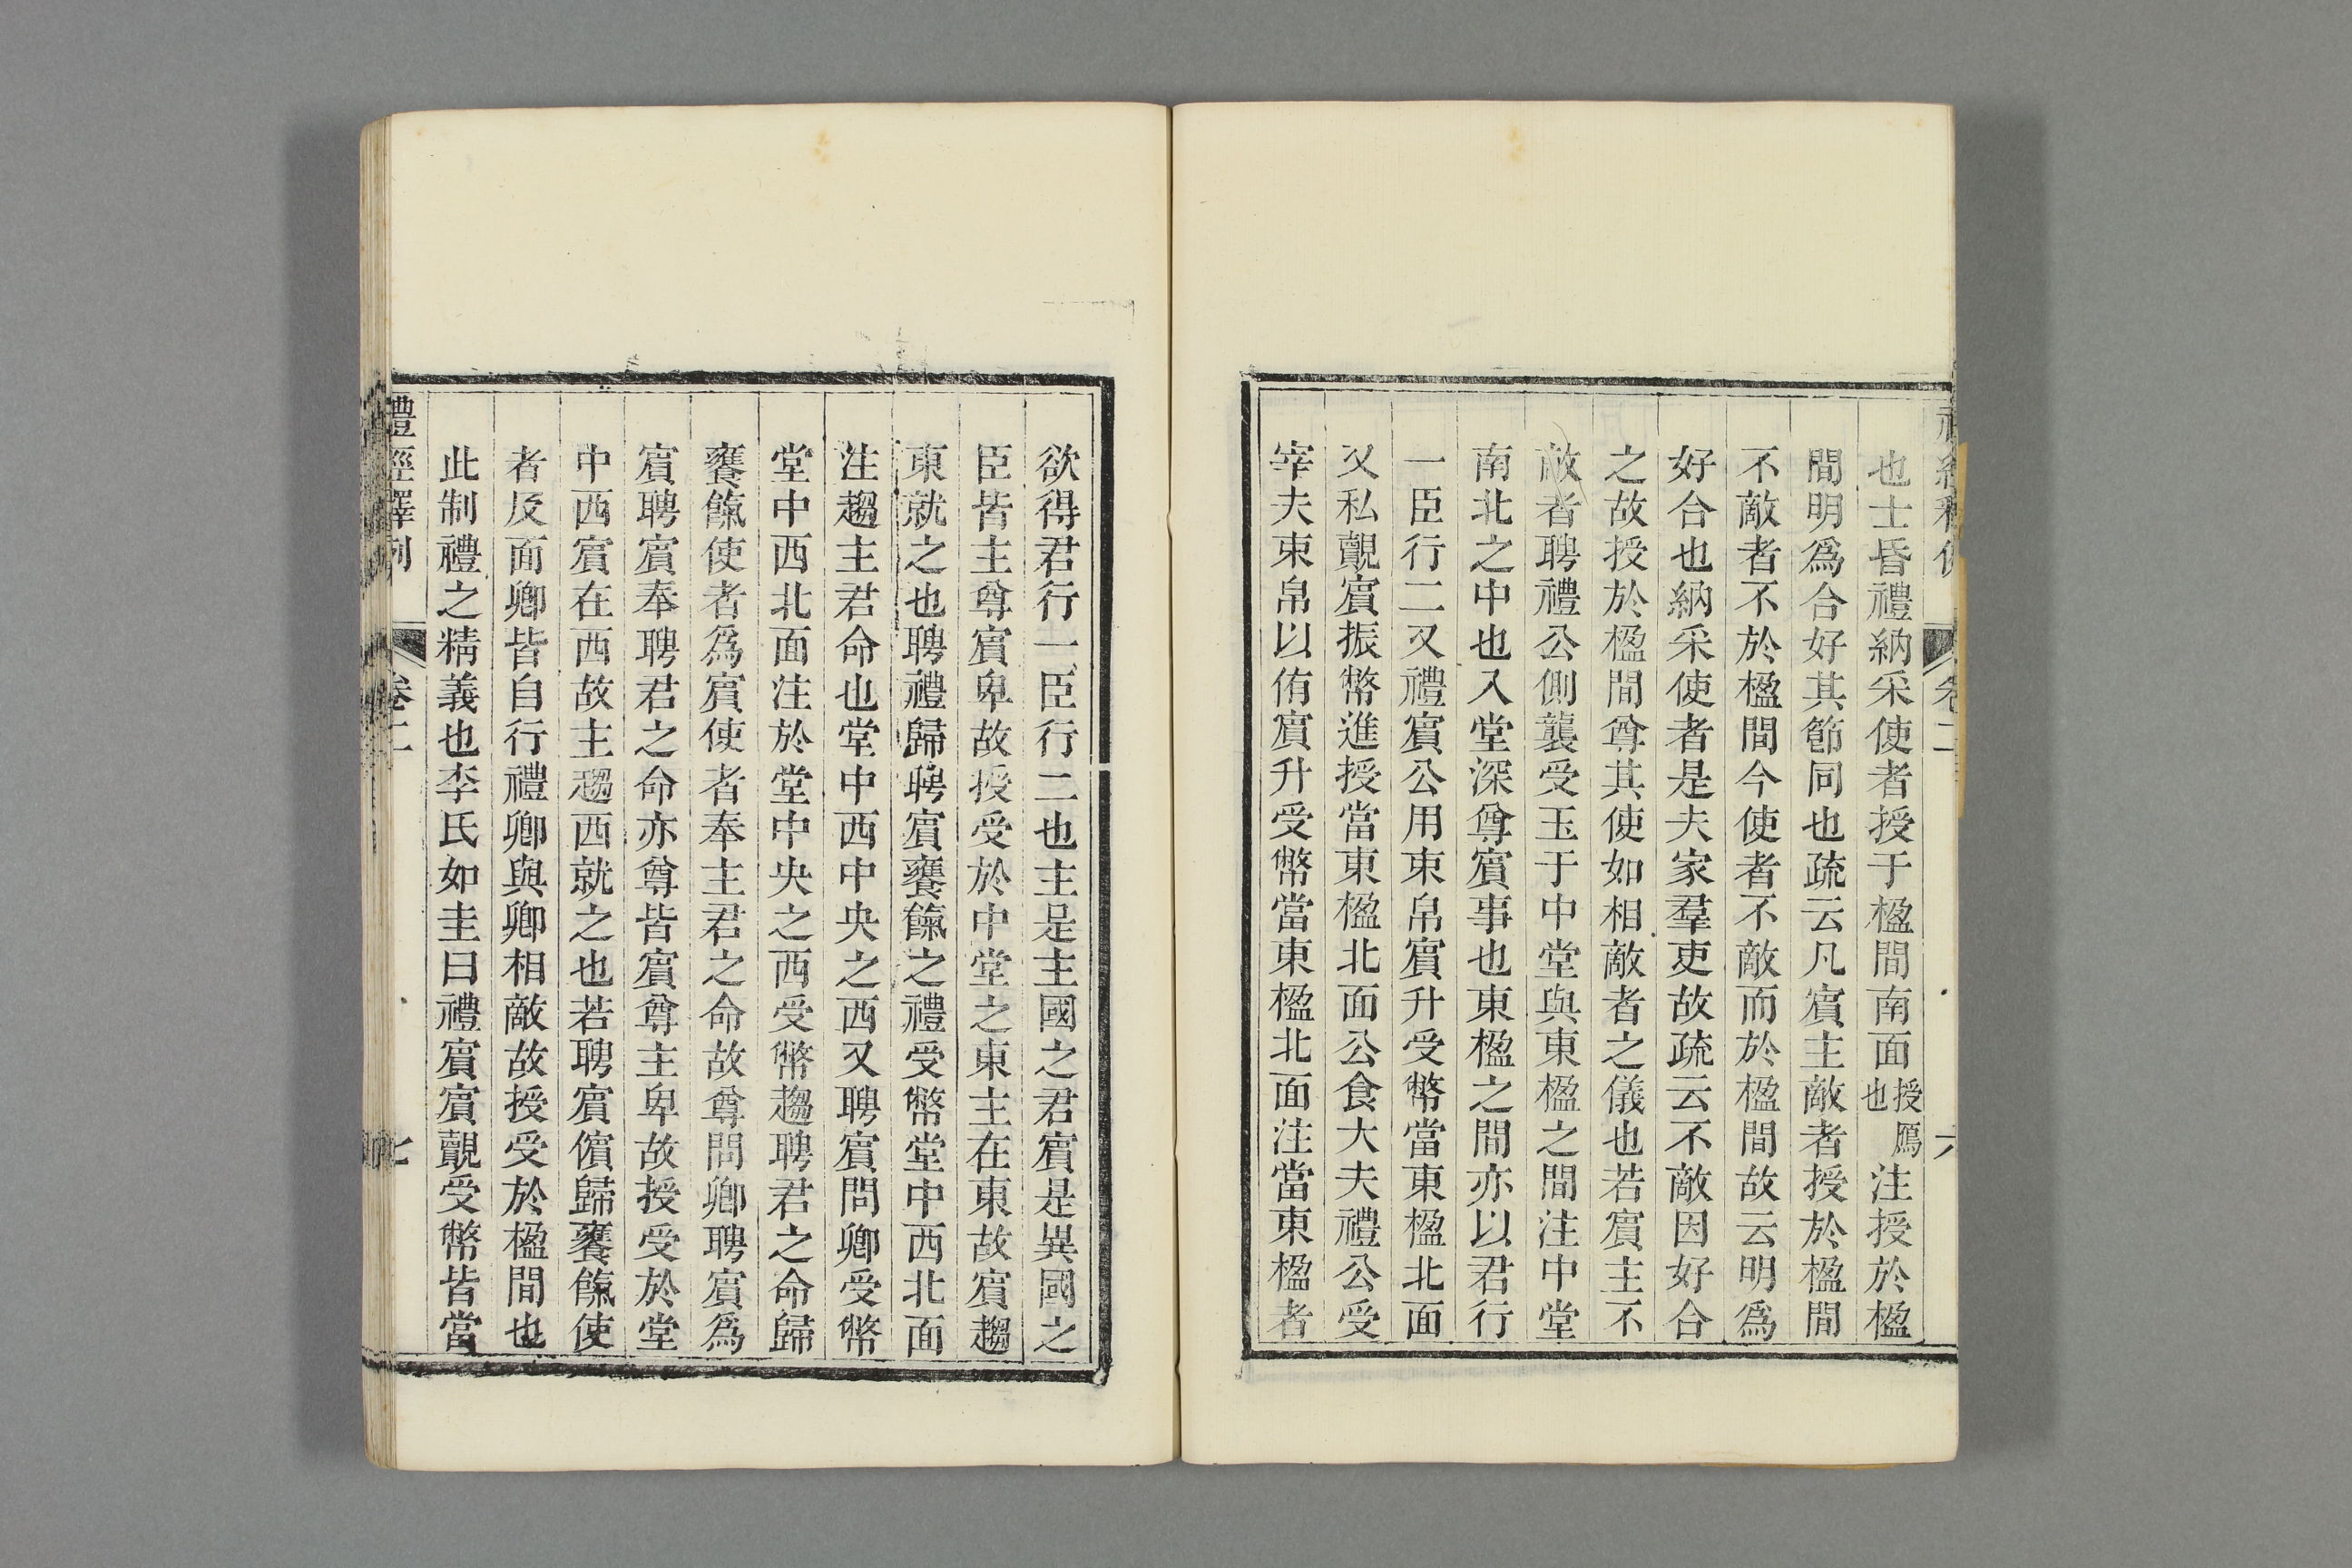 也士昏禮納采使者授于楹間南面授鴈也注授於楹
間明為合好其節同也疏云凡賓主敵者授於楹間
不敵者不於楹間今使者不敵而於楹間故云明為
好合也納采使者是夫家羣吏故疏云不敵因好合
之故授於楹間尊其使如相敵者之儀也若賓主不
敵者聘禮公側襲受玉于中堂與東楹之間注中堂
南北之中也入堂深尊賓事也東楹之間亦以君行
一臣行二又禮賓公用束帛賓升受幣當東楹北面
又私覿賓振幣進授當東楹北面公食大夫禮公受
宰夫束帛以侑賓升受幣當東楹北面注當東楹者
欲得君行一臣行二也主足主國之君賓是異國之
臣皆主尊賓卑故授受於中堂之東主在東故賓趨
東就之也聘禮歸聘賓饔餼之禮受幣堂中西北面
注趨主君命也堂中西中央之西又聘賓問卿受幣
堂中西北面注於堂中央之西受幣趨聘君之命歸
饔餼使者為賓使者奉主君之命故尊問卿聘賓為
賓聘賓奉聘君之命亦尊皆賓尊主卑故授受於堂
中西賓在西故主趨西就之也若聘賓儐歸饔餼使
者及面卿皆自行禮卿與卿相敵故授受於楹間也
此制禮之精義也李氏如圭曰禮賓賓覿受幣皆當
禮經釋例 卷二 七